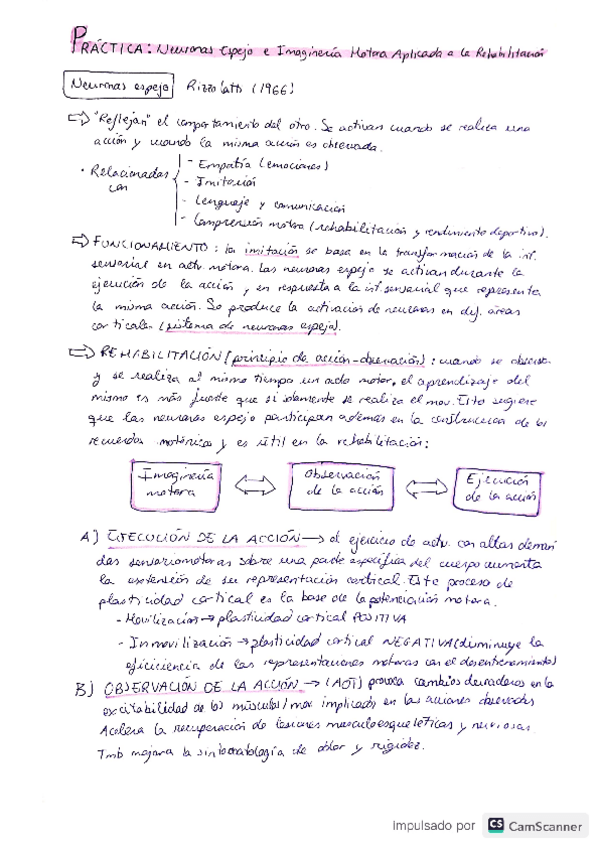 PRÁCTICA: Neuronas Espejo e Imaginería Motora Aplicada a la Rehabilitación
Neuronas espejo Rizzolatti (1966)
⇨ "Reflejan" el comportamiento del otro. Se activan cuando se realiza una
acción y cuando la misma acción es observada.
· Relacionadas con
- Empatía (emociones)
- Imitación
- Lenguaje y comunicación
- Comprensión motora (rehabilitación y rendimiento deportivo).
⇨ FUNCIONAMIENTO: la imitación se basa en la transformación de la inf.
sensorial en actv. motora. Las neuronas espejo se activan durante la
ejecución de la acción y en respuesta a la inf. sensorial que representa
la misma acción. Se produce la activación de neuronas en dif. áreas
corticales (sistema de neuronas espejo).
⇨ REHABILITACIÓN (principio de acción-observación): cuando se observa
y se realiza al mismo tiempo un acto motor, el aprendizaje del
mismo es más fuerte que si solamente se realiza el mov. Esto sugiere
que las neuronas espejo participan además en la construcción de los
recuerdos motóricos y es útil en la rehabilitación:
Imaginería motora ⇔ Observación de la acción ⇔ Ejecución de la acción
A) EJECUCIÓN DE LA ACCIÓN → el ejercicio de actv. con altas deman
das sensoriomotoras sobre una parte específica del cuerpo aumenta
la extensión de su representación cortical. Este proceso de
plasticidad cortical es la base de la potenciación motora.
- Movilización → plasticidad cortical POSITIVA
- Inmovilización → plasticidad cortical NEGATIVA (disminuye la
eficiciencia de las representaciones motoras con el desentrenamiento)
B) OBSERVACIÓN DE LA ACCIÓN → (AOT) provoca cambios duraderos en la
excitabilidad de los músculos/mov implicados en las acciones observadas
Acelera la recuperación de lesiones musculoesqueléticas y nerviosas.
Tmb mejora la sintomatología de dolor y rigidez.
Impulsado por CS CamScanner